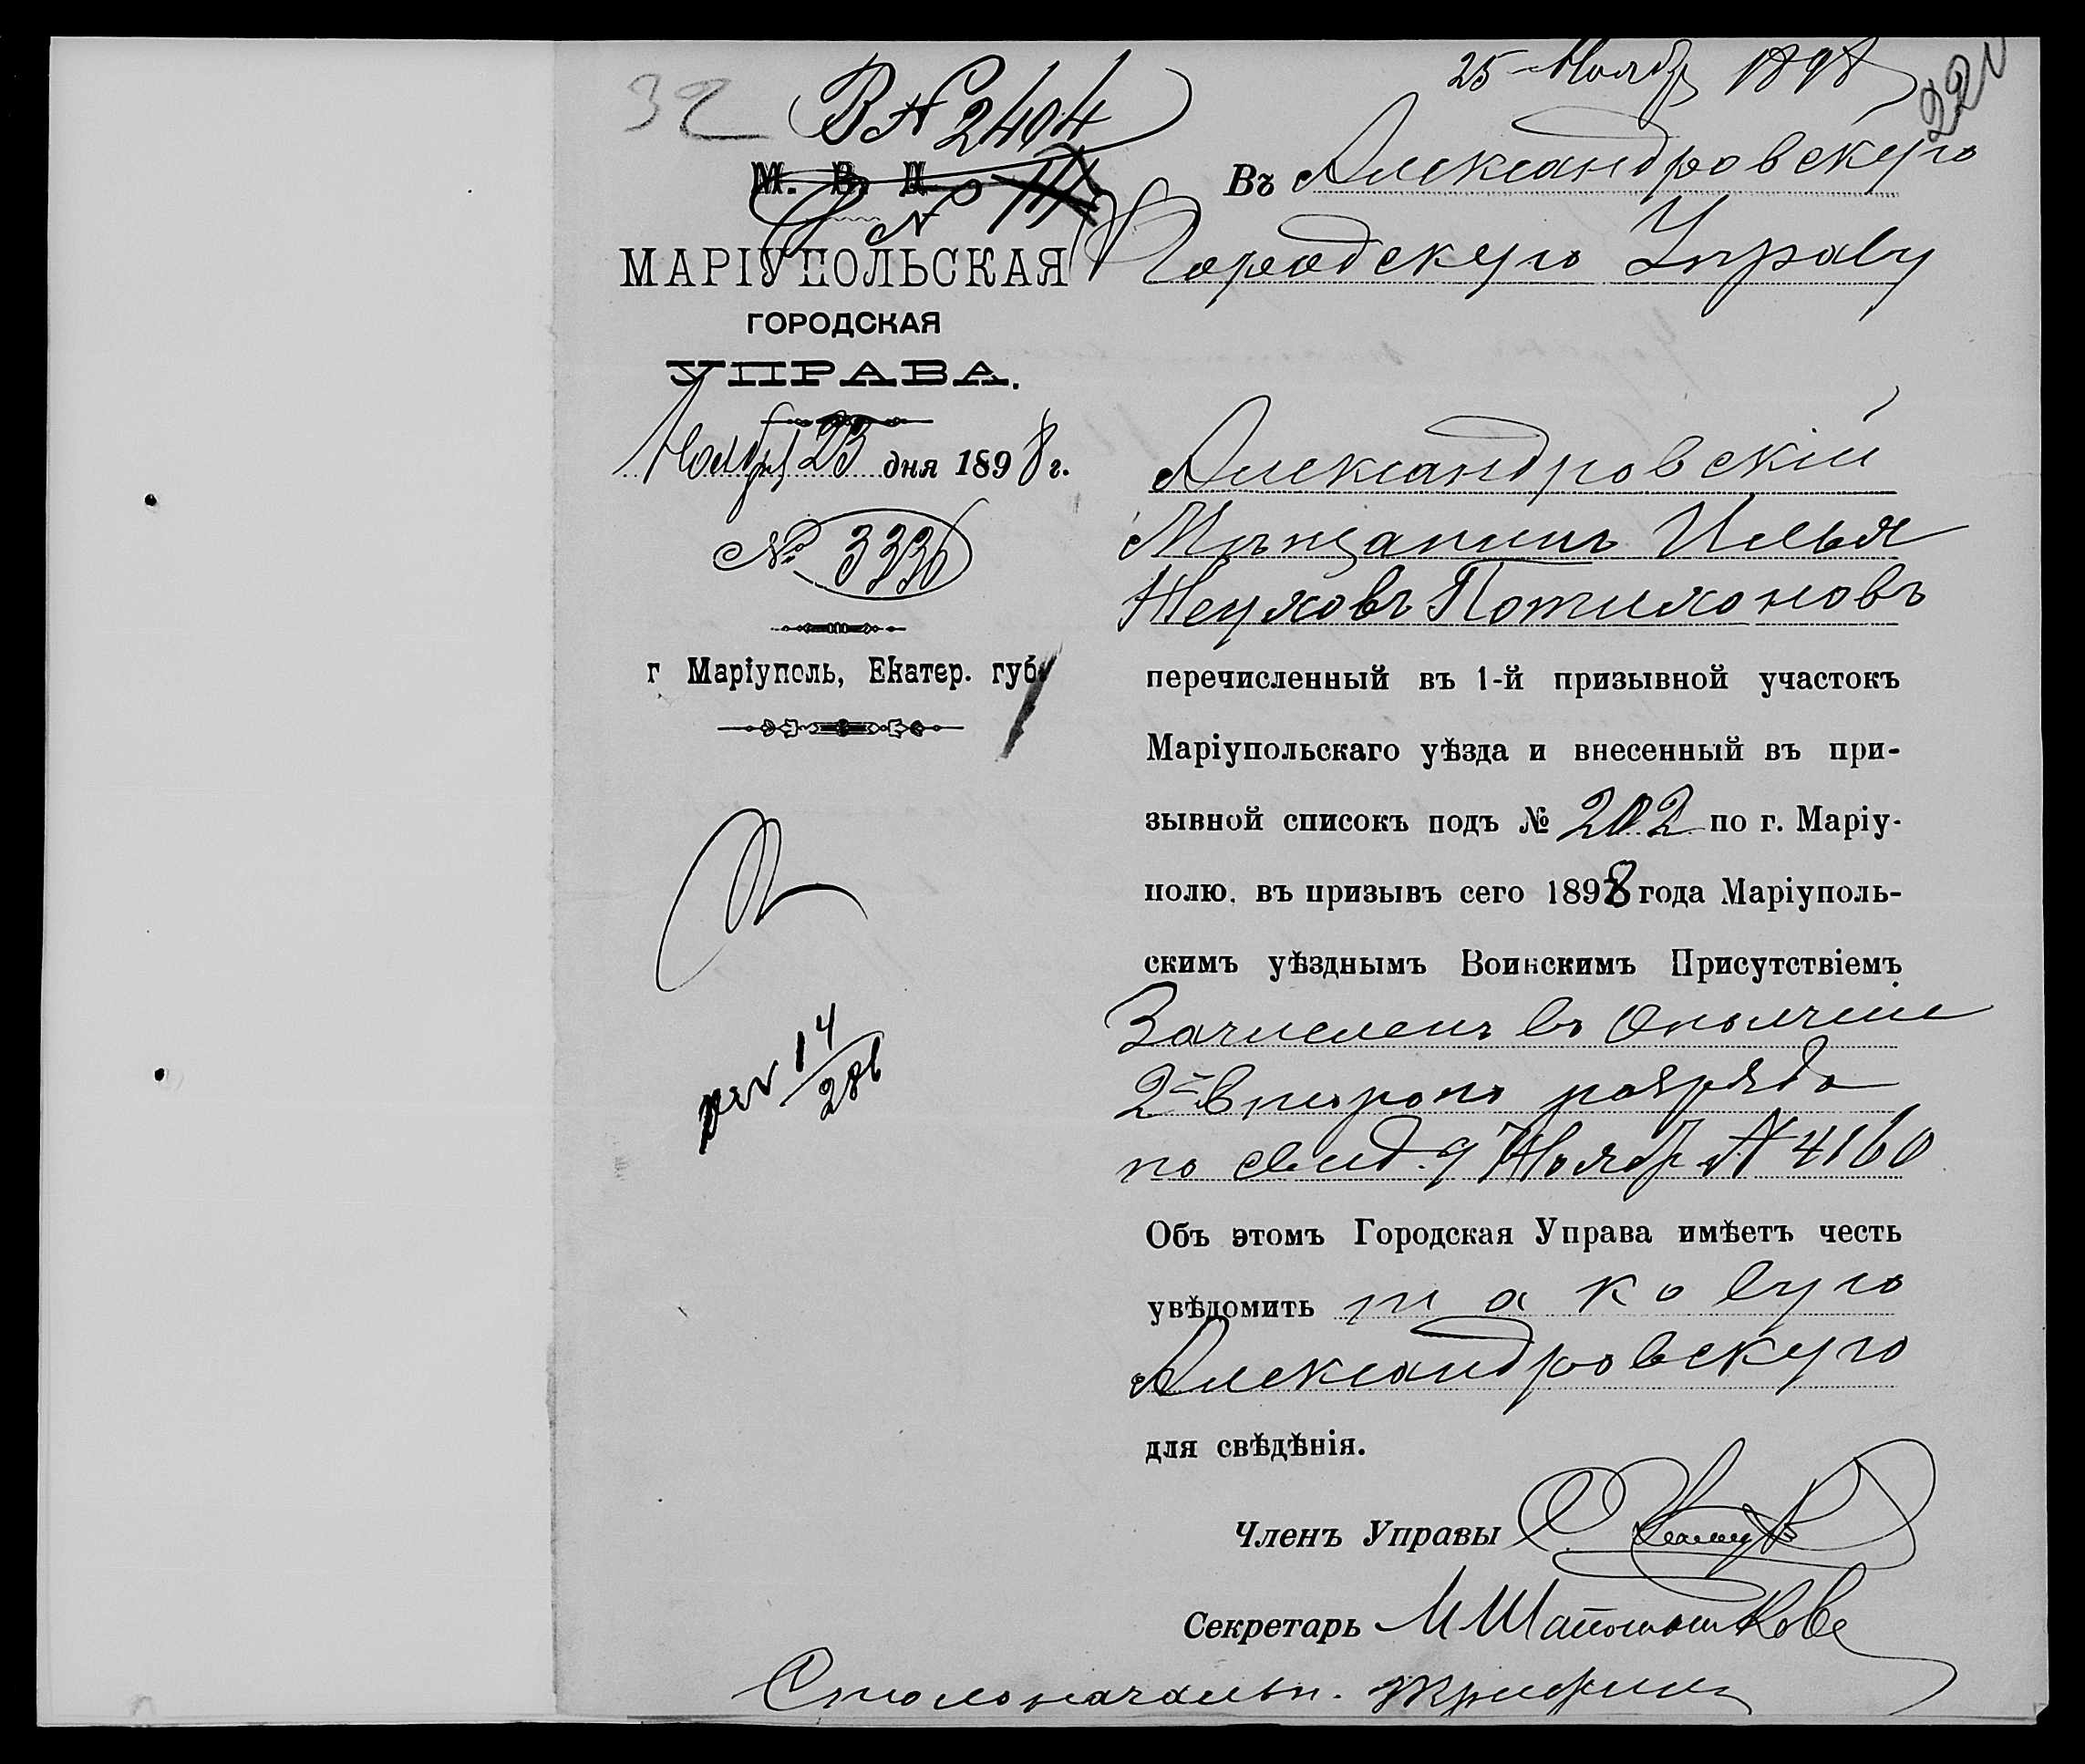 32
В № 2404
М. В. Д.
МАРІУПОЛЬСКАЯ
ГОРОДСКАЯ
УПРАВА.
Ноября 23 дня 1898 г.
№ 3336
г Маріуполь, Екатер. губ.
14
286
25 Ноябр 1898
221
Въ Александровскую
Городскую Управу
Александровскій
Мѣщанинъ Илья
Неуховъ Потихоновъ
перечисленный въ 1-й призывной участокъ
Маріупольскаго уѣзда и внесенный въ при-
зывной списокъ подъ № 202 по г. Маріу-
полю, въ призывъ сего 1898 года Маріуполь-
скимъ уѣзднымъ Воинскимъ Присутствіемъ
Зачисленъ въ Ополчение
2го второго разряда
по свид. 9 Ноябр № 4160
Объ этомъ Городская Управа имѣетъ честь
увѣдомить таковую
Александровскую
для свѣдѣнія.
Членъ Управы
Секретарь М
Столоначальн.